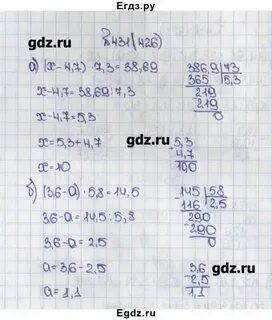 Ёгдз.ру
gdz.ru
№431(426)
gdz.ru
а) (x-4,7)·7,3=38,69
x-4,7=38,69:7,3
x-4,7=5,3
x=5,3+4,7
x=10
386,9 73
365 5,3
219
219
0
5,3
4,7
10,0
gdz.ru
gdz.ru
б) (3,6-a)·5,8=14,5
3,6-a=14,5:5,8
3,6-a=2,5
a=3,6-2,5
a=1,1
145 58
116 2,5
290
290
0
3,6
2,5
1,1
gdz.ru
gdz.ru